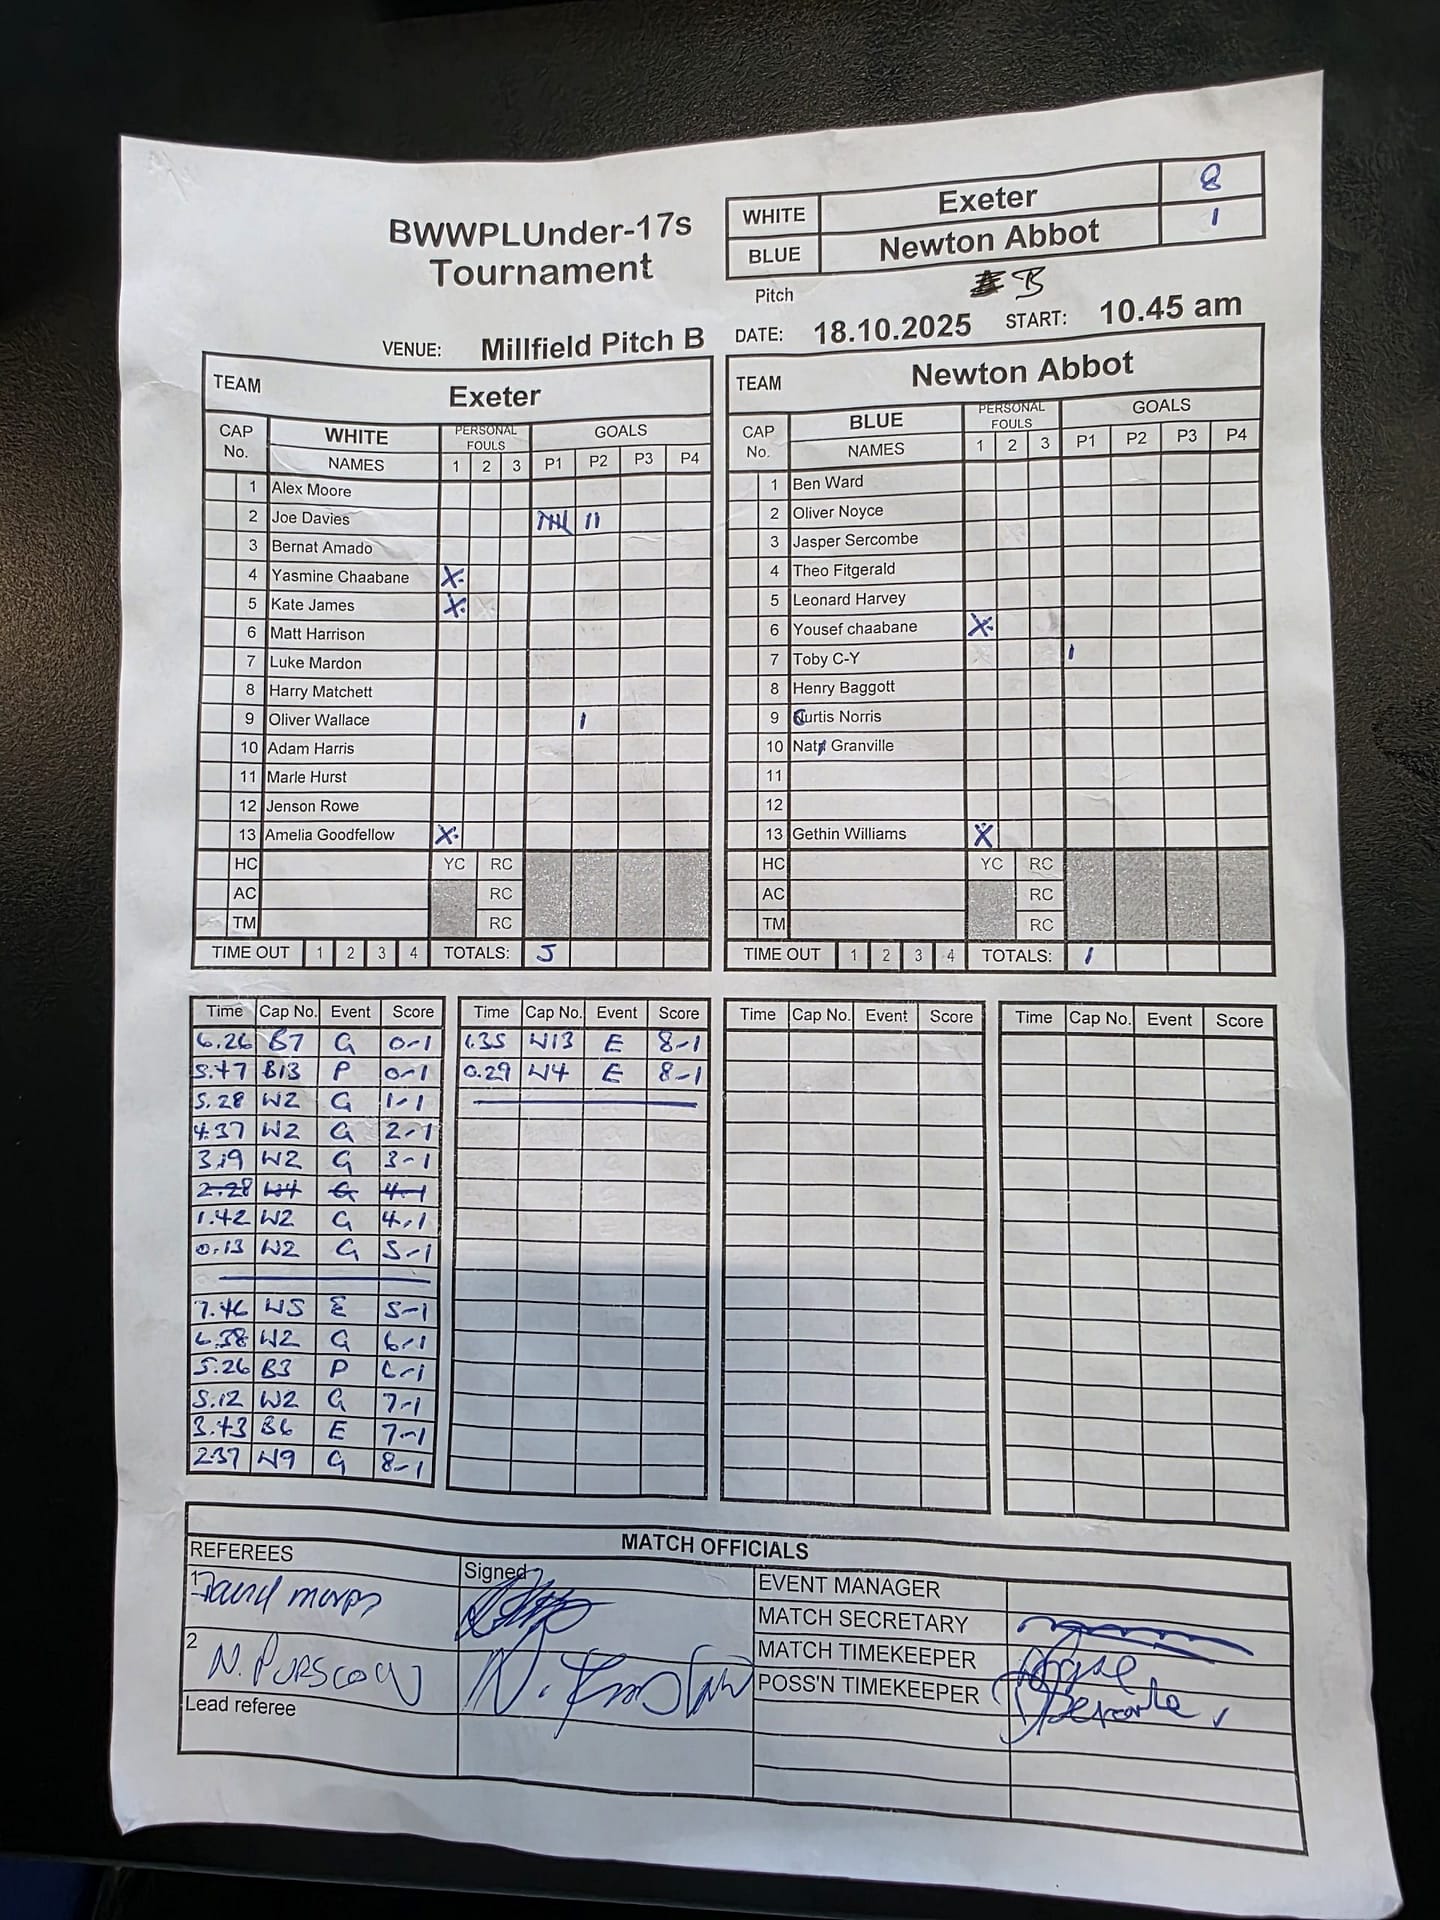 BWWPLUnder-17s
Tournament
WHITE Exeter 8
BLUE Newton Abbot 1
Pitch B
VENUE: Millfield Pitch B DATE: 18.10.2025 START: 10.45 am
TEAM Exeter
CAP No. WHITE NAMES PERSONAL FOULS 1 2 3 GOALS P1 P2 P3 P4
1 Alex Moore
2 Joe Davies |||| ||
3 Bernat Amado
4 Yasmine Chaabane X
5 Kate James X
6 Matt Harrison
7 Luke Mardon
8 Harry Matchett
9 Oliver Wallace 1
10 Adam Harris
11 Marle Hurst
12 Jenson Rowe
13 Amelia Goodfellow X
HC YC RC
AC RC
TM RC
TIME OUT 1 2 3 4 TOTALS: 5
TEAM Newton Abbot
CAP No. BLUE NAMES PERSONAL FOULS 1 2 3 GOALS P1 P2 P3 P4
1 Ben Ward
2 Oliver Noyce
3 Jasper Sercombe
4 Theo Fitgerald
5 Leonard Harvey
6 Yousef chaabane X
7 Toby C-Y 1
8 Henry Baggott
9 Curtis Norris
10 Nat Granville
11
12
13 Gethin Williams X
HC YC RC
AC RC
TM RC
TIME OUT 1 2 3 4 TOTALS: 1
Time Cap No. Event Score
6.26 B7 G 0-1
5.47 B13 P 0-1
5.28 W2 G 1-1
4.37 W2 G 2-1
3.19 W2 G 3-1
2.28 W4 G 4-1
1.42 W2 G 4-1
0.13 W2 G 5-1
7.46 W5 E 5-1
6.38 W2 G 6-1
5.26 B3 P 6-1
5.12 W2 G 7-1
3.43 B6 E 7-1
2.37 W9 G 8-1
Time Cap No. Event Score
1.35 W13 E 8-1
0.29 W4 E 8-1
Time Cap No. Event Score
Time Cap No. Event Score
MATCH OFFICIALS
REFEREES Signed
1 David
2 N.
Lead referee
EVENT MANAGER
MATCH SECRETARY
MATCH TIMEKEEPER
POSS'N TIMEKEEPER